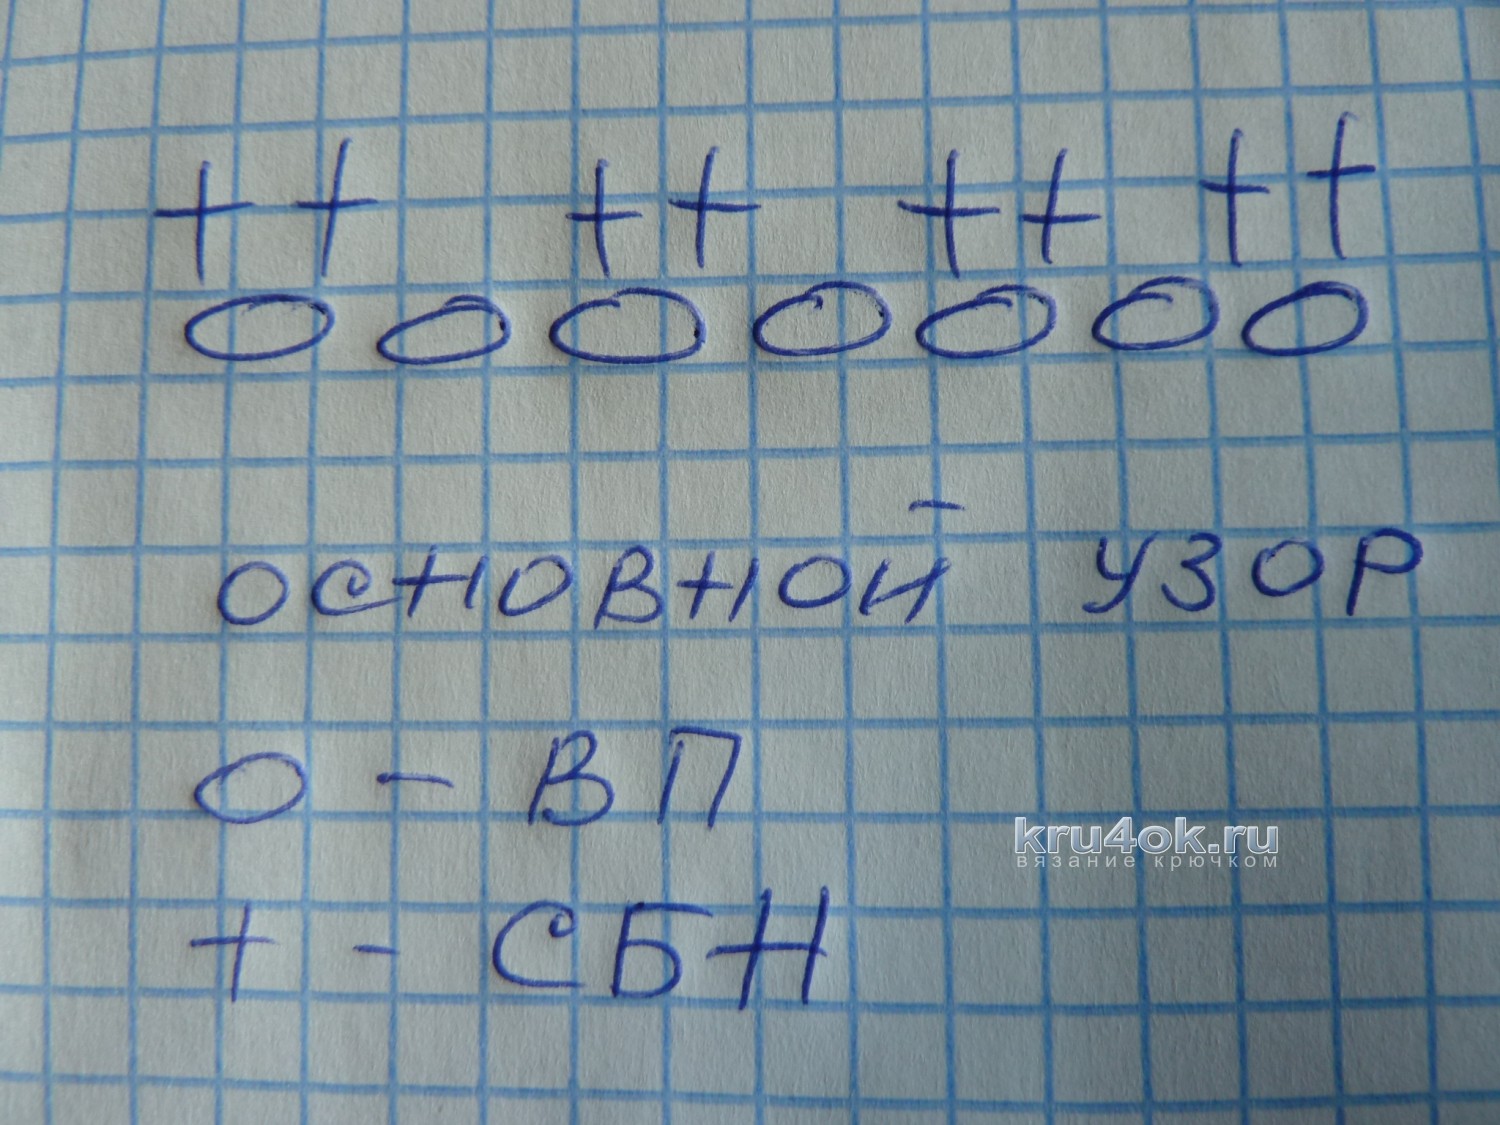 ++ ++ ++ ++
О О О О О О О
ОСНОВНОЙ УЗОР
О - ВП
+ - СБН
kru4ok.ru
вязание крючком